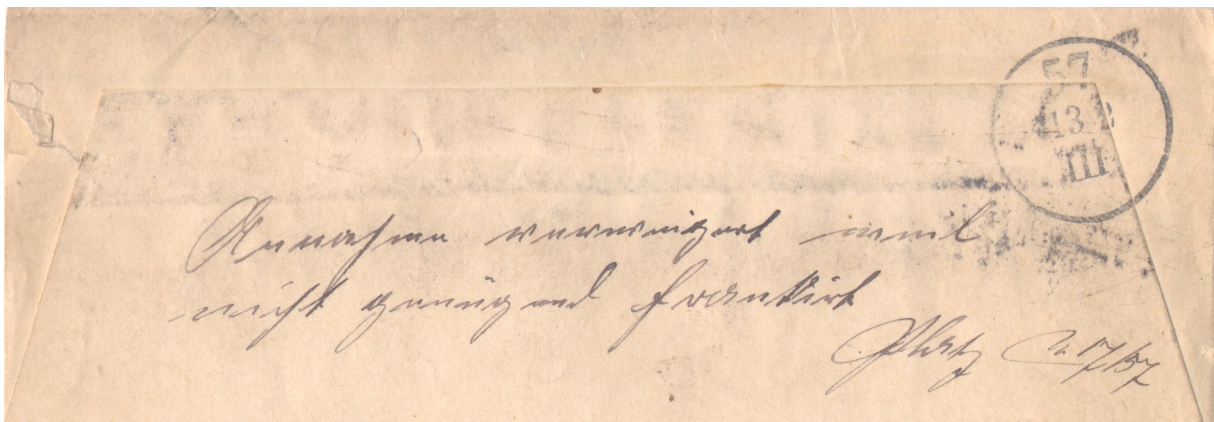 57
13 2
III
Annahme verweigert weil
nicht genügend frankirt
17/57